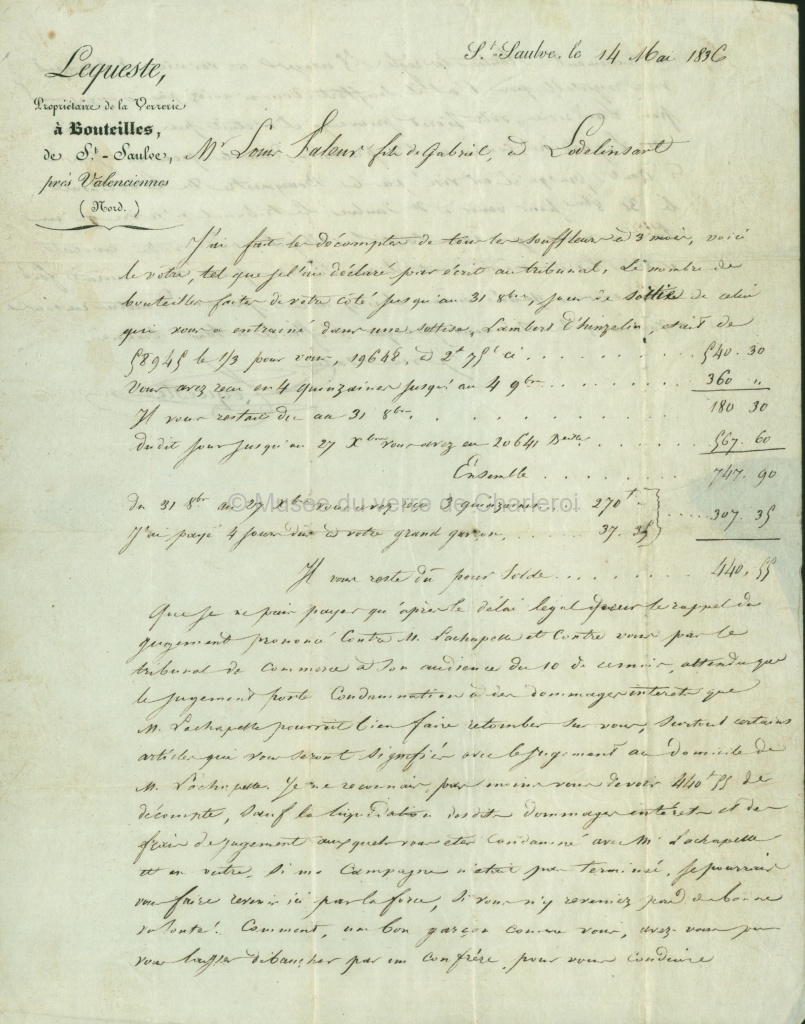 St-Saulve, le 14 Mai 1836
Lequeste,
Propriétaire de la Verrerie
à Bouteilles,
de St-Saulve,
près Valenciennes
(Nord.)
Mr Louis Faleur fils de Gabriel, à Lodelinsart
J'ai fait les décomptes de tous les souffleurs à 3 mois, voici
le votre, tel que je l'ai déclaré par écrit au tribunal. Le nombre de
bouteilles faites de votre côté jusqu'au 31 8bre, jour de sottise de celui
qui vous a entrainé dans une sottise, Lambert D'hinzelin, était de
58945 le 1/3 pour vous, 19648, à 2f 75c ci . . . . . . . . . . 540. 30
Vous avez reçu en 4 quinzaines jusqu'au 4 9bre . . . . . . . . 360 "
Il vous restait du au 31 8bre, . . . . . . . . 180 30
Dudit jour jusqu'au 27 Xbre vous avez eu 20641 Bxlles . . . . . . 567. 60
Ensemble . . . . . . . . 747. 90
du 31 8bre au 27 Xbre vous avez reçu 3 quinzaines . . . 270f "
. . . . . 307. 35
J'ai payé 4 jours dus à votre grand garçon, . . . . . . 37. 35
Il vous reste dû pour solde . . . . . . . . . 440. 55
Que je ne puis payer qu'après le délai légal pour le rappel du
jugement prononcé contre M. Lachapelle et contre vous par le
tribunal de commerce à son audience du 10 de ce mois, attendu que
le jugement porte condamnation à des dommages intérêts que
M. Lachapelle pourrait bien faire retomber sur vous, surtout certains
articles qui vous seront signifiés avec le jugement au domicile de
M. Lachapelle. Je ne reconnais pas moins vous devoir 440f 55 de
décompte, sauf la liquidation desdits dommages intérêts et des
frais de jugement auxquels vous êtes condamné avec Mr Lachapelle
et en outre. Si ma campagne n'était pas terminée, je pourrais
vous faire revenir ici par la force, si vous n'y reveniez pas de bonne
volonté! Comment, un bon garçon comme vous, avez-vous pu
vous laisser débaucher par un confrère, pour vous conduire
©Musée du verre de Charleroi